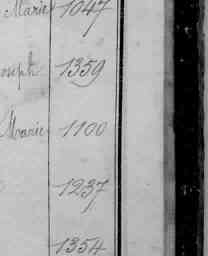 Marie 1047
oseph 1359
Marie 1100
1237
1354